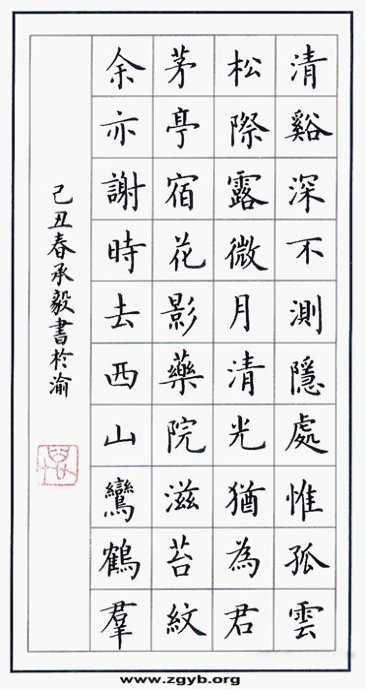 清谿深不測隱處惟孤雲
松際露微月清光猶為君
茅亭宿花影藥院滋苔紋
余亦謝時去西山鸞鶴羣
己丑春承毅書於渝
www.zgyb.org